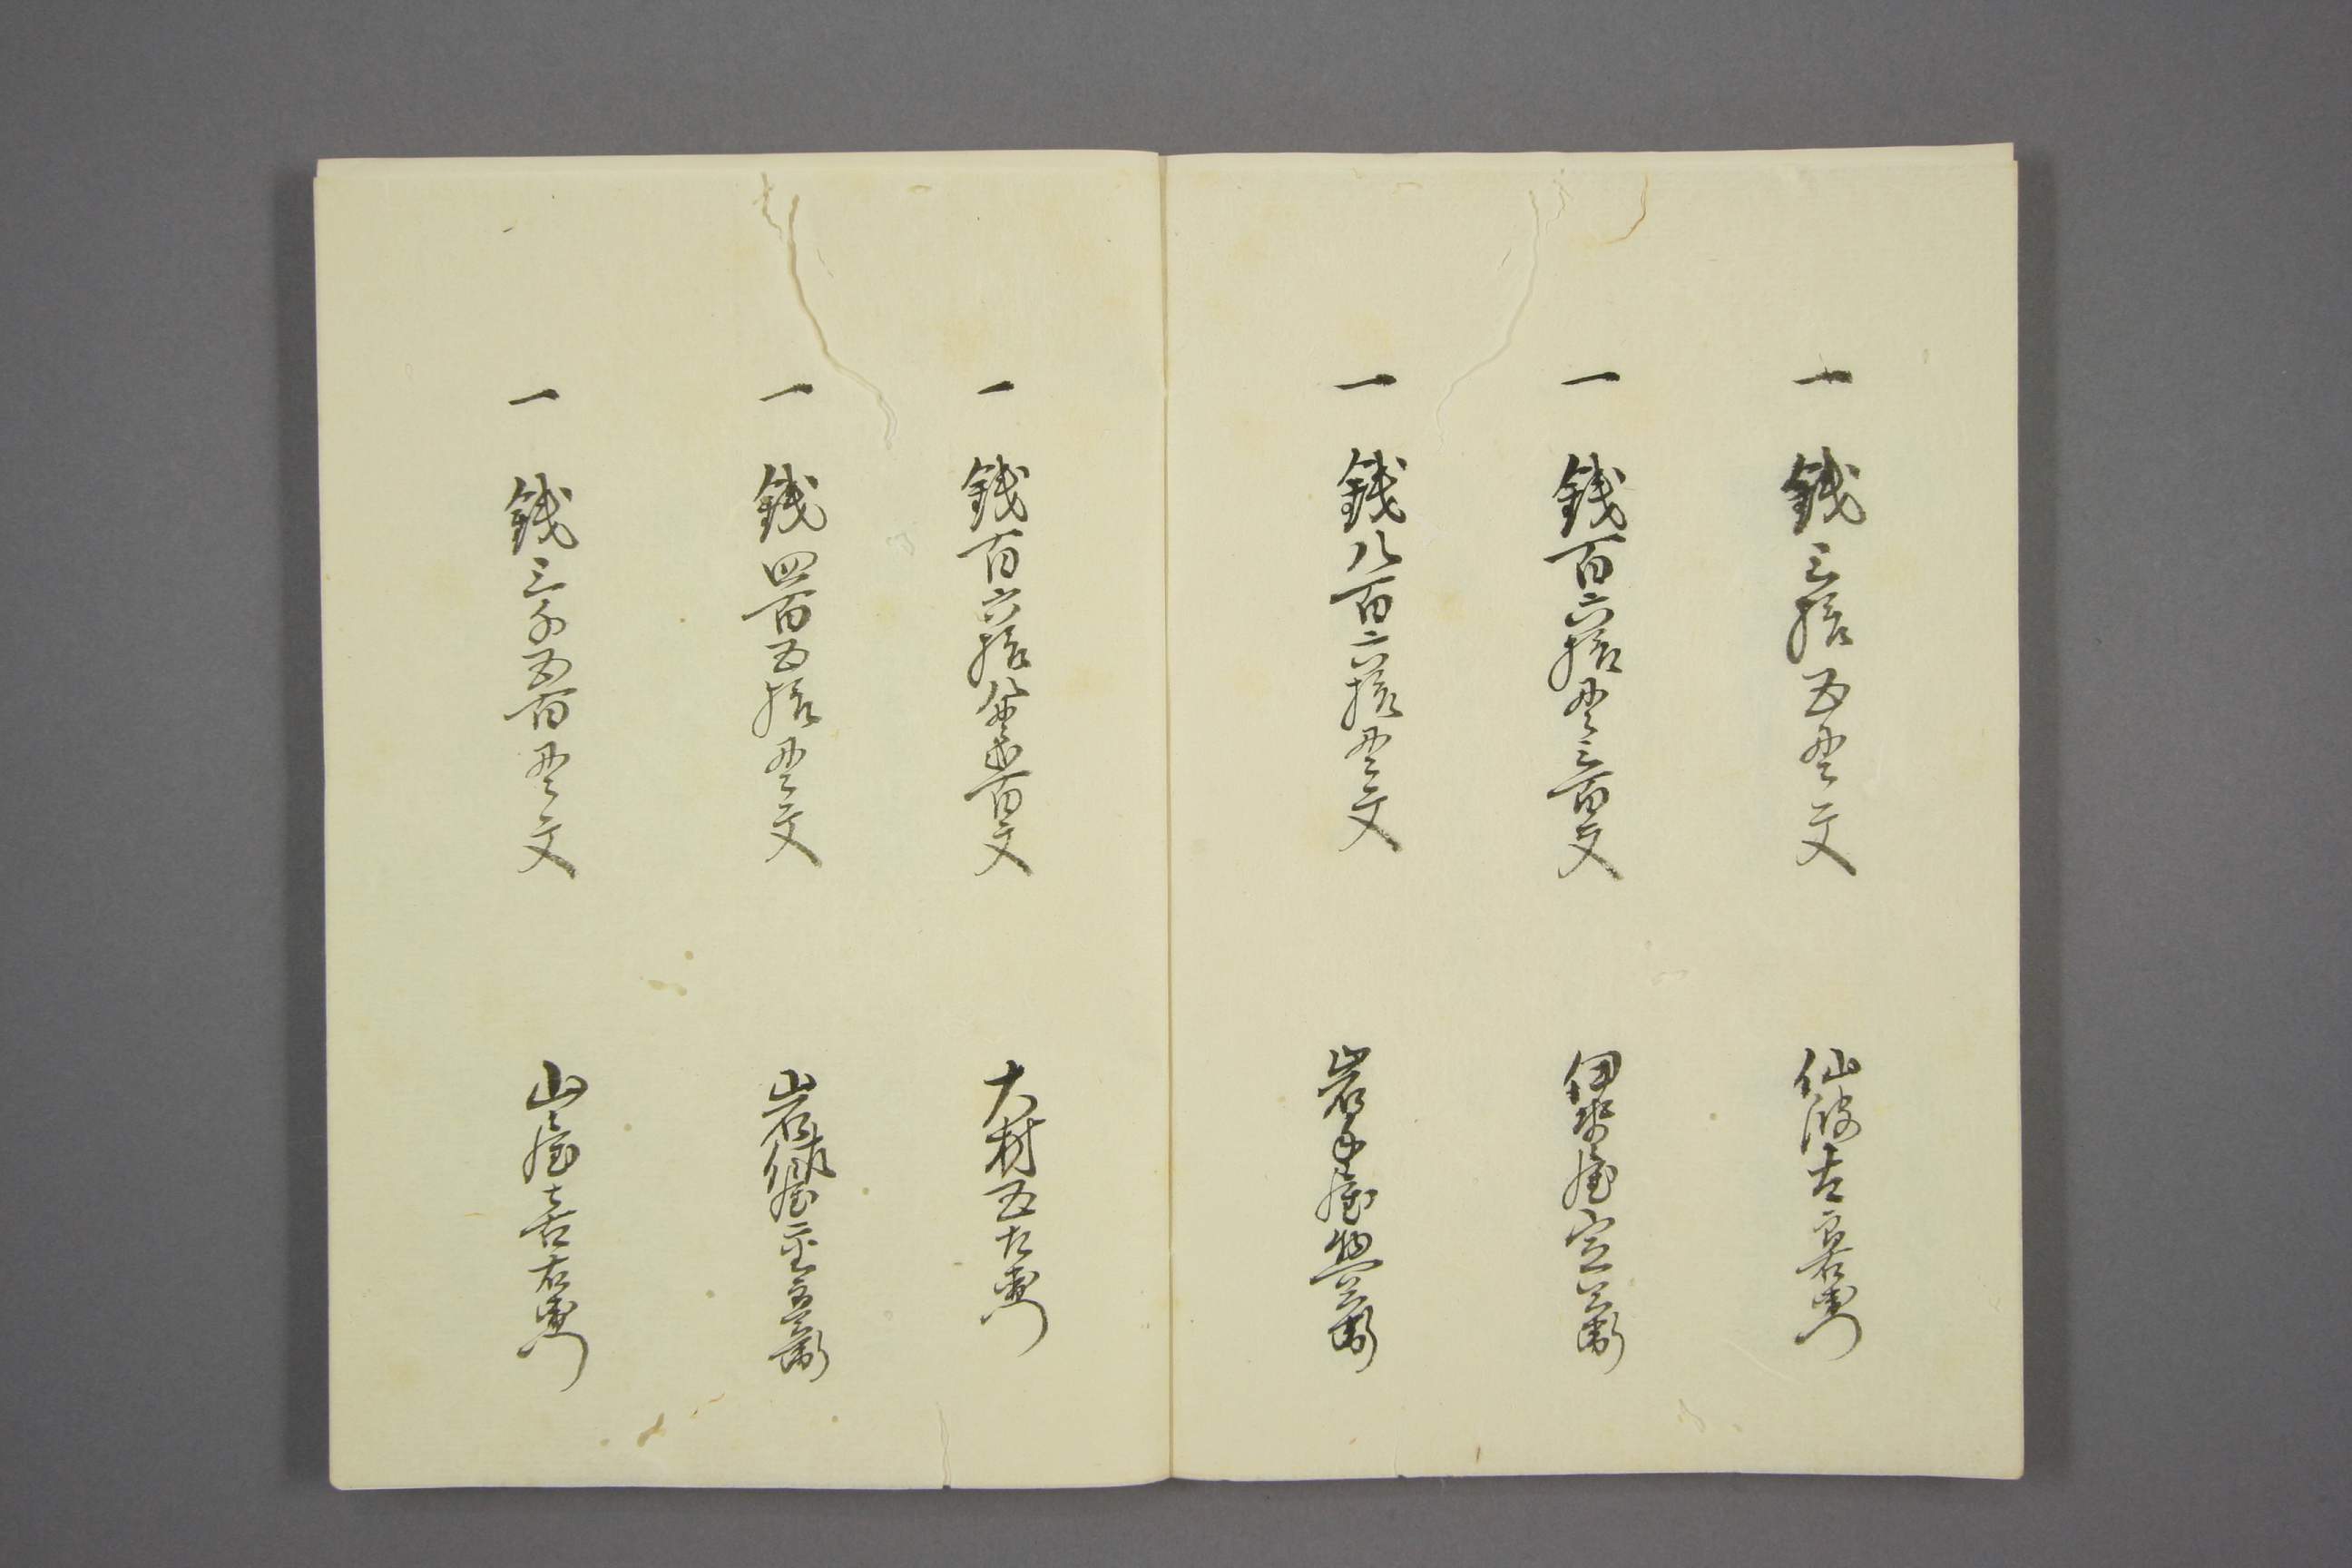 一 銭三拾五貫文 仙波 郎右衛門
一 銭百六拾貫三百文 伊勢屋定兵衛
一 銭八百六拾貫文 岩手屋惣兵衛
一 銭百六拾八貫弐百文 大村五左衛門
一 銭四百五拾貫文 岩城屋 兵衛
一 銭三千五百貫文 山屋喜右衛門